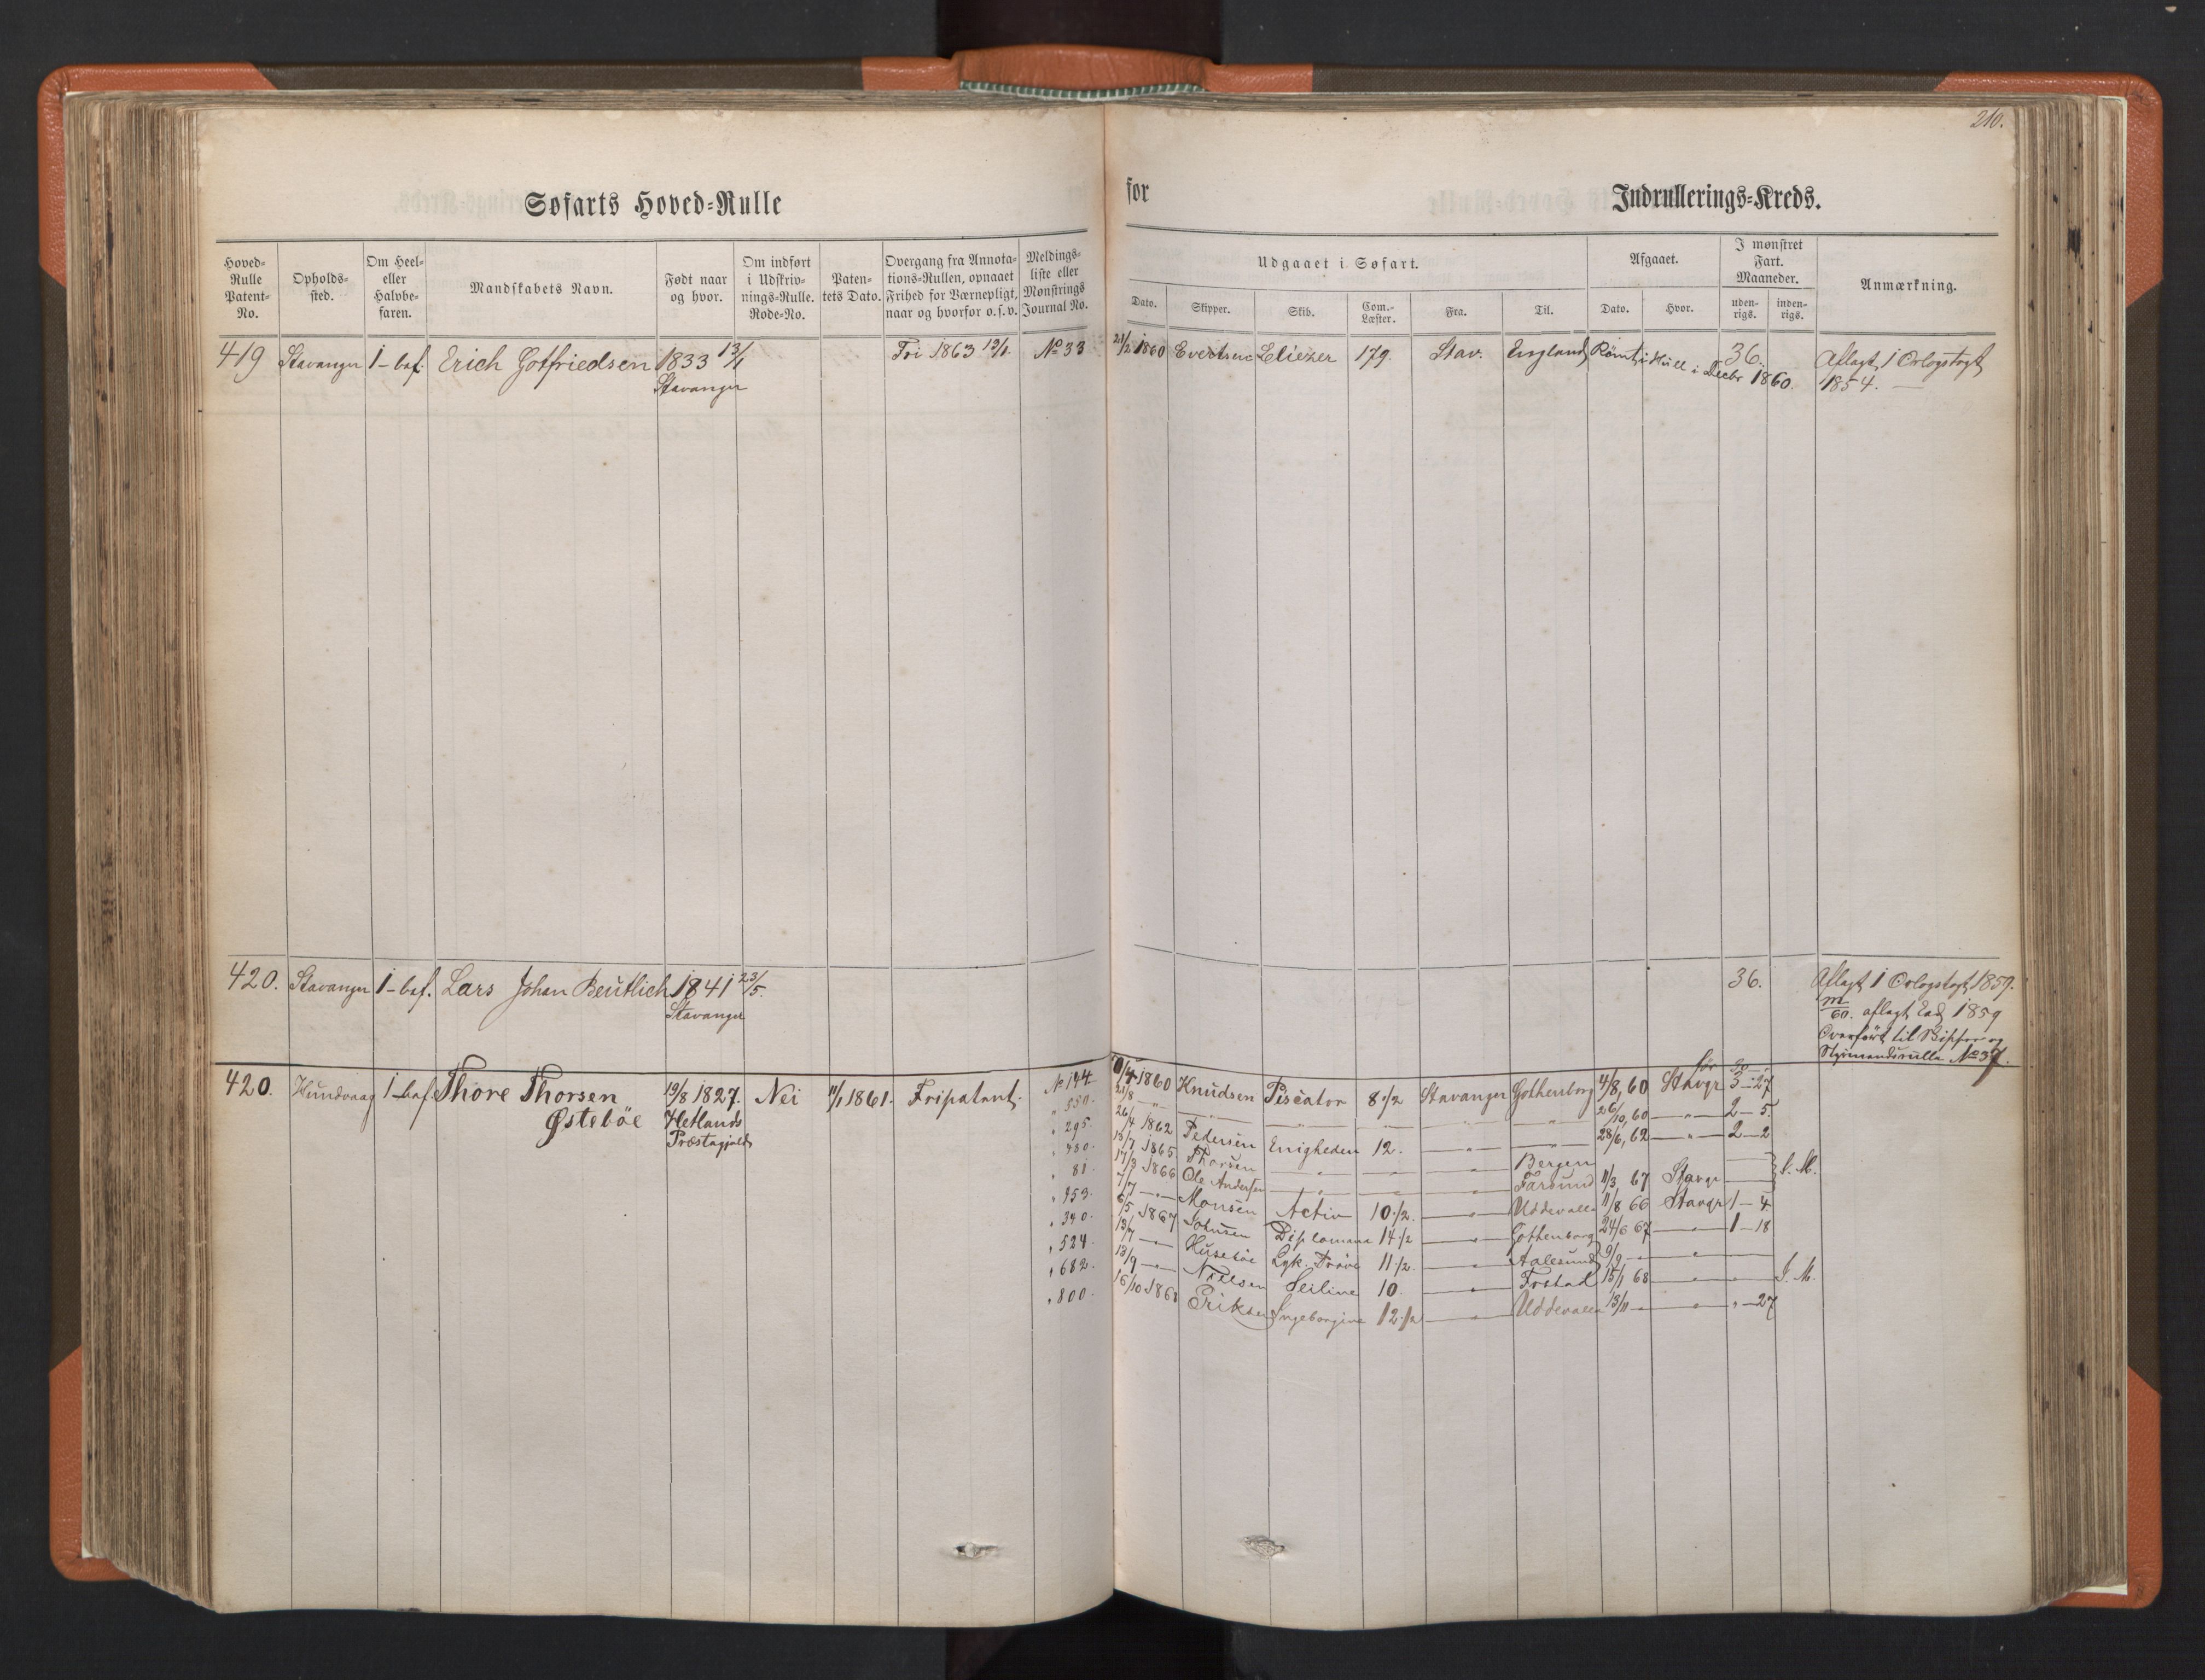 210.
Søfarts Hoved-Rulle
for
Indrullerings-Kreds.
Hoved-Rulle Patent-No.
Opholds-sted.
Om Heel- eller Halvbe-faren.
Mandskabets Navn.
Født naar og hvor.
Om indført i Udskriv-nings-Rulle. Rode-No.
Paten-tets Dato.
Overgang fra Annota-tions-Rullen, opnaaet Frihed for Værnepligt, naar og hvorfor o.s.v.
Meldings-liste eller Mønstrings Journal No.
Udgaaet i Søfart.
Dato.
Skipper.
Skib.
Com.-Læster.
Fra.
Til.
Afgaaet.
Dato.
Hvor.
I mønstret Fart. Maaneder.
uden-rigs.
inden-rigs.
Anmærkning.
419 Stavanger 1-bef. Erich Gotfriedsen 1833 13/1 Fri 1863 13/1. No 33 21/2 1860 Evertsen Eliezer 179. Stav. England Rømt i Hull i Decbr 1860. 36. Aflagt 1 Orlogstogt
Stavanger 1854.
420. Stavanger 1-bef. Lars Johan Beutlich 1841 23/5. 36. Aflagt 1 Orlogstogt 1859.
Stavanger aflagt Eed 1859
Overført til Skipper og
Styrmandsrulle No 37.
420. Hundvaag 1-bef. Thore Thorsen 19/8 1827. Nei 11/1 1861. Fripatent. No 144 1860 Knudsen Piscator 8 1/2 Stavanger Gothenborg 4/8, 60 Stavgr 3-27
Østebøe Hetlands
Præstegjeld
" 550. 21/8 —"— 26/10, 60 —"— 2-5.
" 295. 26/4 1862 Pedersen Enigheden 12. —"— 28/6, 62 —"— 2-2
" 480. 18/7 1865 Thorsen —"— Bergen
" 81. 17/3 1866 Ole Andersen —"— Farsund 11/3 67 Stavgr
" 453. 7/7 —"— Monsen Activ 10 1/2. —"— Uddevalla 11/8 66 Stavgr 1-4
" 340. 6/5 1867 Johnsen Diplomaen 14 1/2 —"— Gothenborg 24/6 67 —"— 1-18
" 524. 13/7 —"— Husebøe Lyk. Prøve 11 1/2. —"— Aalesund 9/9 —"—
" 682. 13/9 —"— Nielsen Seiline 10. —"— 15/1 68 —"—
" 800. 16/10 1868 Eriksen Ingeborgine 12 1/2 —"— Uddevalla 13/11 —"— " -27